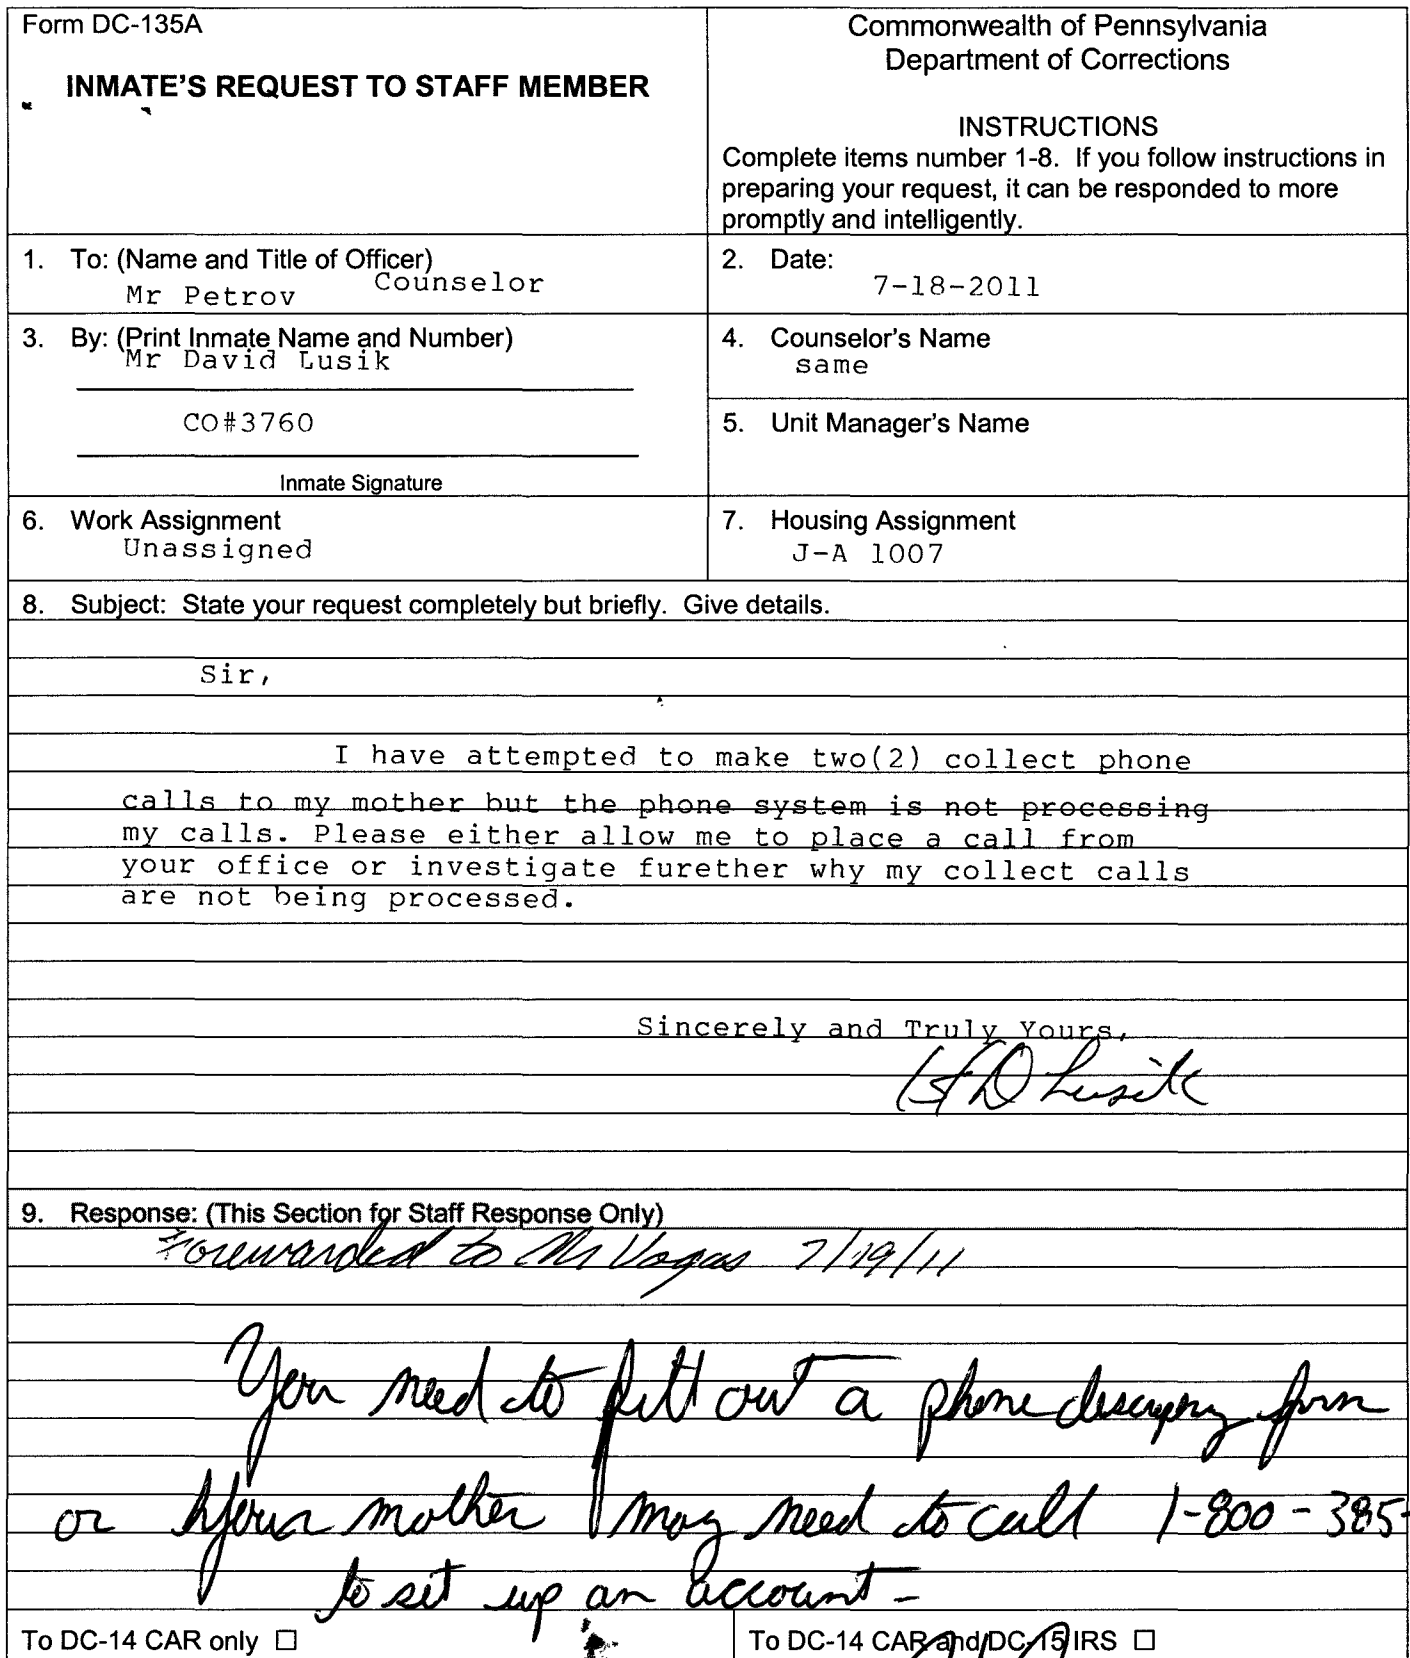 Form DC-135A
INMATE'S REQUEST TO STAFF MEMBER
Commonwealth of Pennsylvania
Department of Corrections
INSTRUCTIONS
Complete items number 1-8. If you follow instructions in
preparing your request, it can be responded to more
promptly and intelligently.
1. To: (Name and Title of Officer)
Mr Petrov Counselor
2. Date:
7-18-2011
3. By: (Print Inmate Name and Number)
Mr David Lusik
CO#3760
Inmate Signature
4. Counselor's Name
same
5. Unit Manager's Name
6. Work Assignment
Unassigned
7. Housing Assignment
J-A 1007
8. Subject: State your request completely but briefly. Give details.
Sir,
I have attempted to make two(2) collect phone
calls to my mother but the phone system is not processing
my calls. Please either allow me to place a call from
your office or investigate furether why my collect calls
are not being processed.
Sincerely and Truly Yours,
D Lusik
9. Response: (This Section for Staff Response Only)
Forewarded to Mr Vogas 7/19/11
You need to fill out a phone form
or your mother may need to call 1-800-385-
to set up an account-
To DC-14 CAR only ☐
To DC-14 CAR and DC-15 IRS ☐